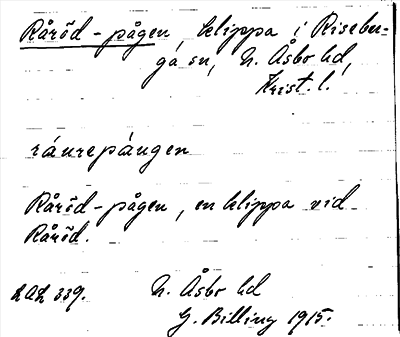 Råröd-pågen, klippa i Riseber-
ga sn, N. Åsbo hd,
Krist. l.
ráurepáugen
Råröd-pågen, en klippa vid
Råröd.
LAL 339. N. Åsbo hd
G. Billing 1915.